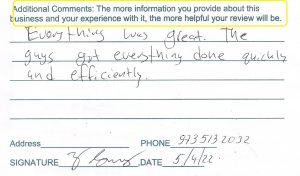 Additional Comments: The more information you provide about this
business and your experience with it, the more helpful your review will be.
Everything was great. The
guys got everything done quickly
and efficiently.
Address PHONE 973 513 2032
SIGNATURE DATE 5/4/22